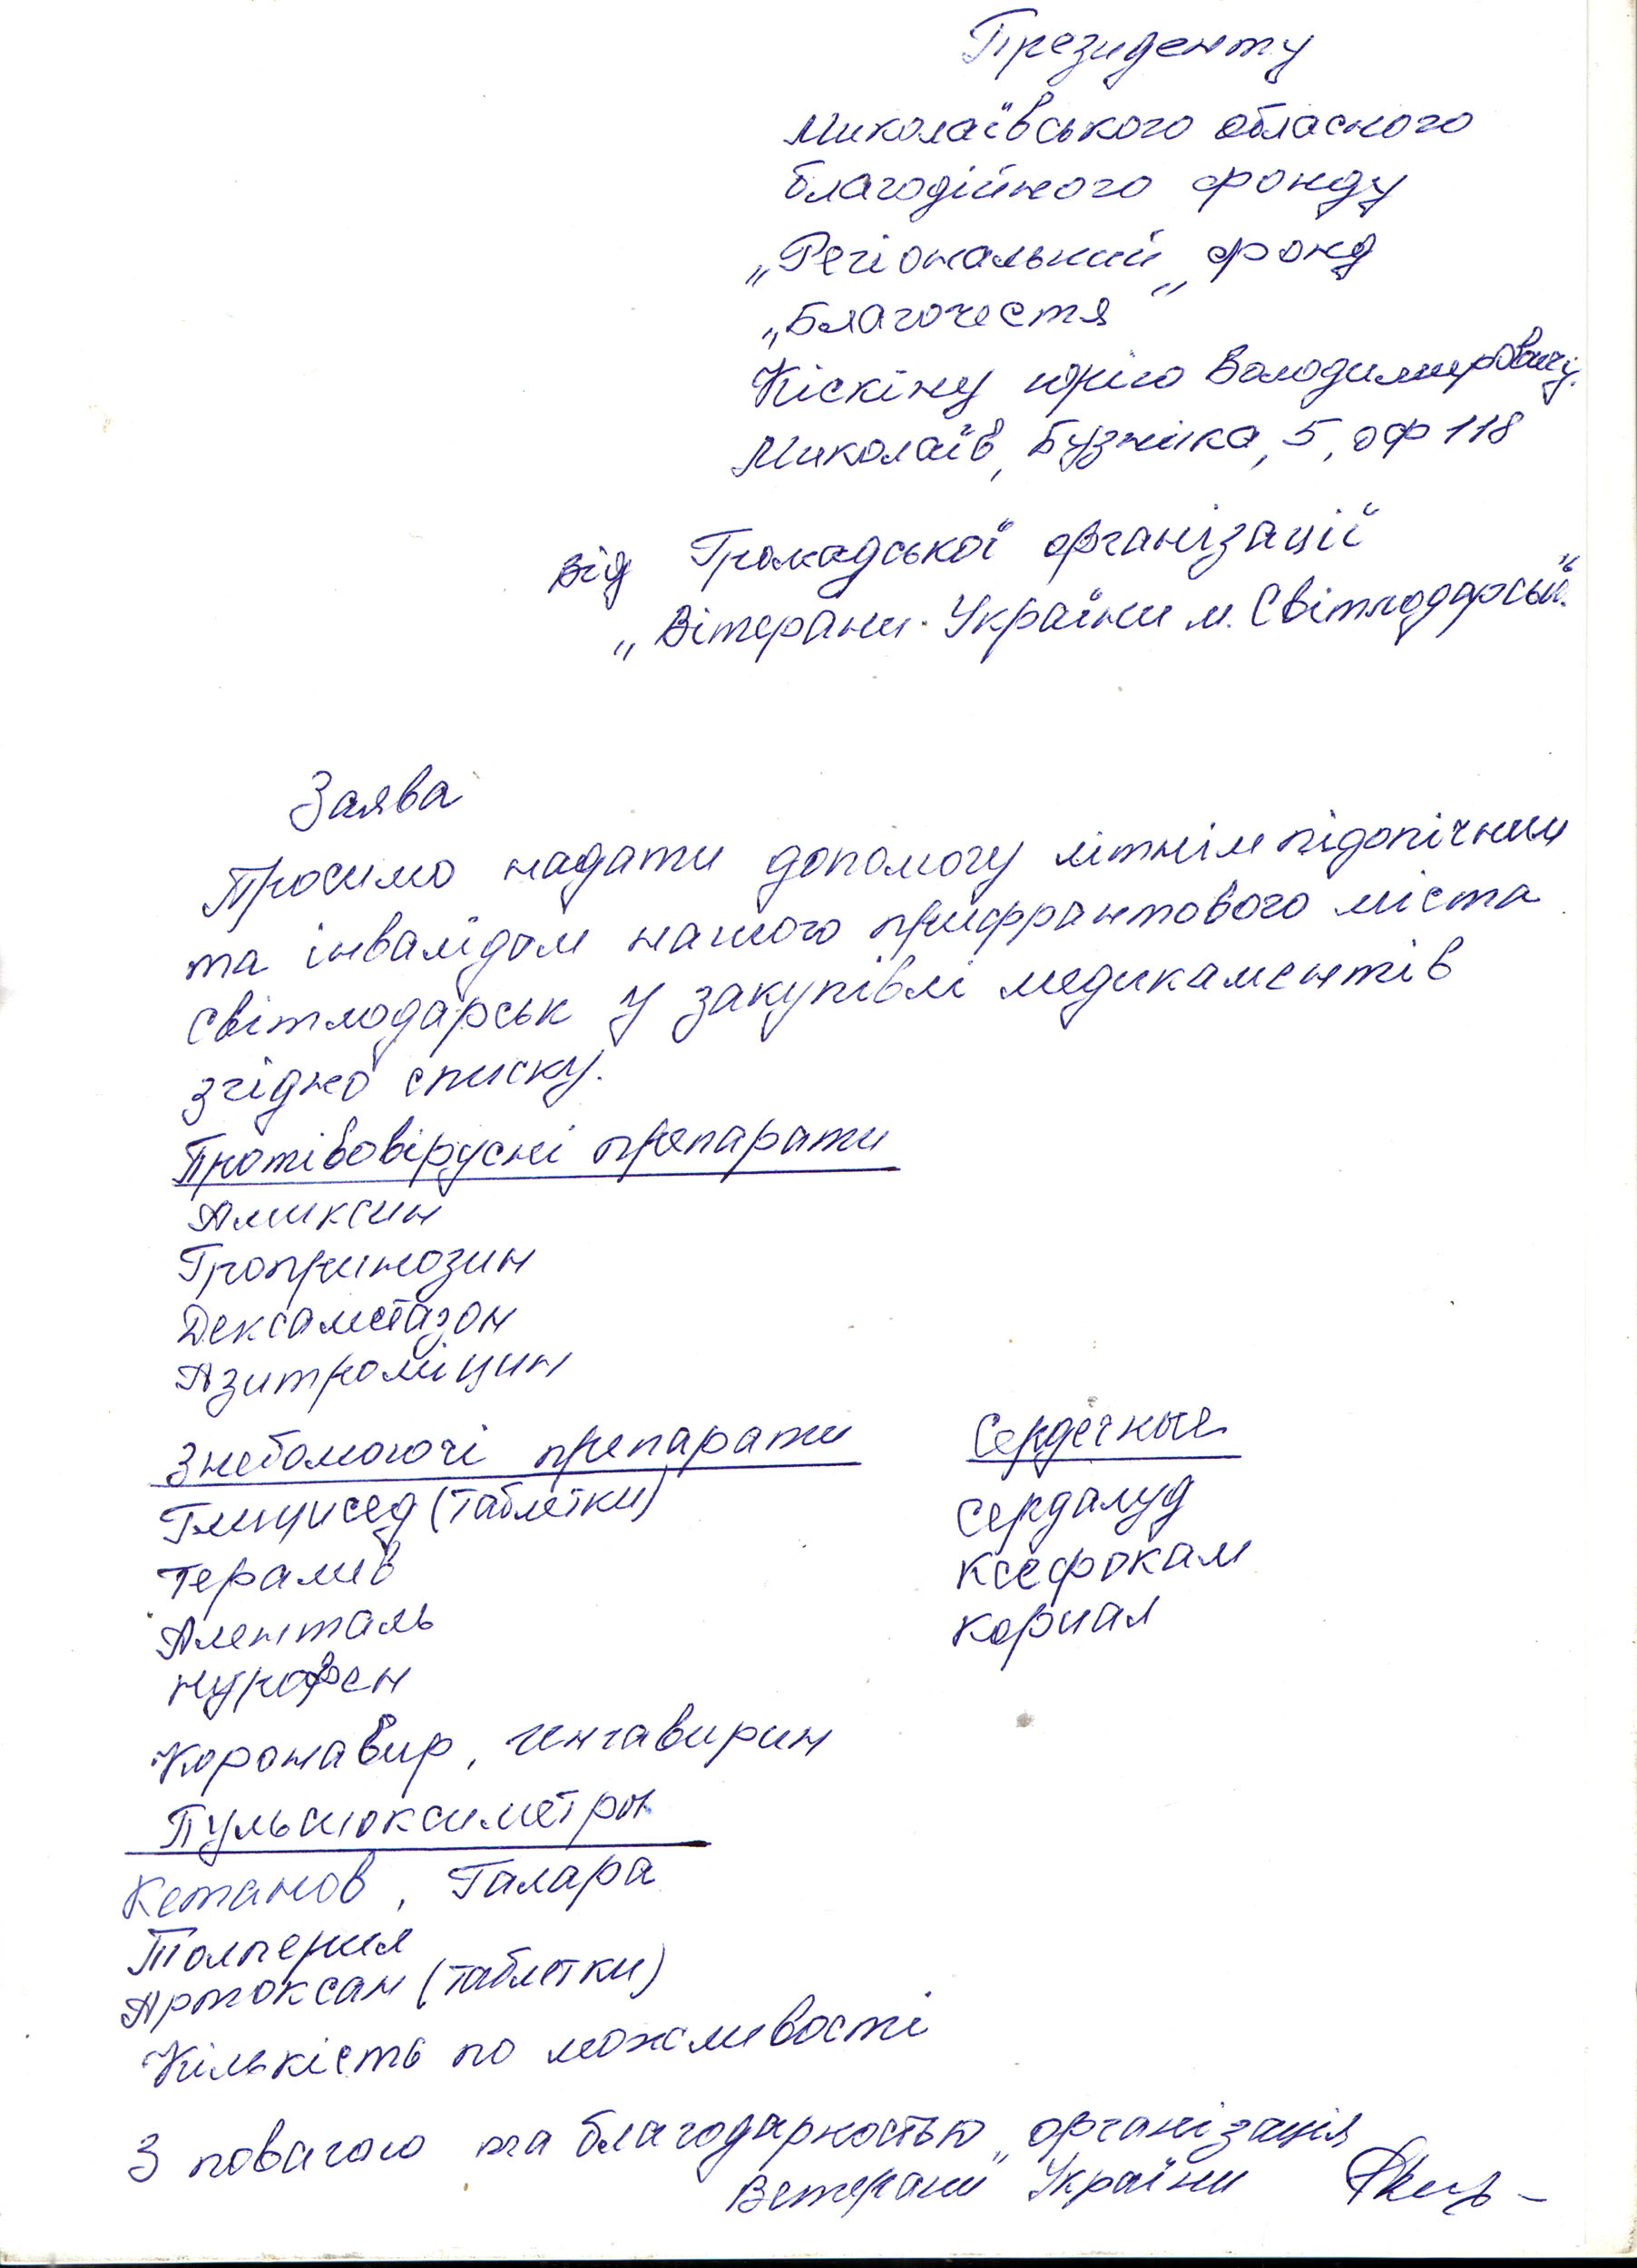 Президенту
Миколаївського обласного
благодійного фонду
„Регіональний фонд
„Благочестя"
Кіскіну Юрію Володимировичу.
Миколаїв, Бузніка, 5, оф 118
від Громадської організації
„Вітерани України м. Світлодарськ"
Заява
Просимо надати допомогу літнім підопічним
та інвалідам нашого прифронтового міста
Світлодарськ у закупівлі медикаментів
згідно списку.
Протівовірусні препарати
Амиксин
Гропринозин
Дексаметазон
Азитроміцин
Знеболюючі препарати
Глицисед (таблетки)
Тералив
Аленталь
Нурофен
Сердечные
Сердалуд
Ксефокам
Корвал
Коронавир, Ингавирин
Пульсиоксиметры
Кетанов, Галара
Толперил
Артоксан (таблетки)
Кількість по можливості
З повагою та благодарностью організація
„Ветерани України